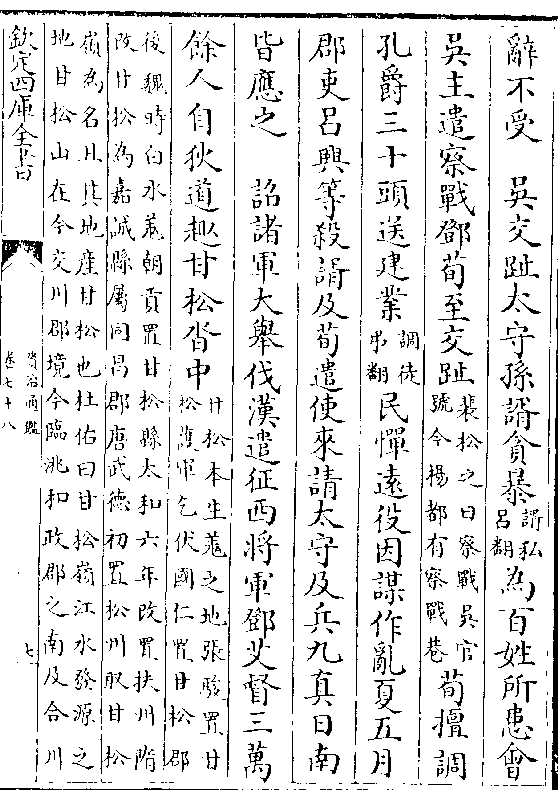 辭不受　吳交趾太守孫諝貪暴諝私呂翻為百姓所患會
吳主遣察戰鄧荀至交趾裴松之曰察戰吳官號今揚都有察戰巷荀擅調
孔爵三十頭送建業調徒弔翻民憚遠役因謀作亂夏五月
郡吏呂興等殺諝及荀遣使來請太守及兵九真日南
皆應之　詔諸軍大舉伐漢遣征西將軍鄧艾督三萬
餘人自狄道趣甘松沓中甘松本生羌之地張駿置甘松護軍乞伏國仁置甘松郡
後魏時白水羌朝貢置甘松縣太和六年改置扶州隋
改甘松為嘉誠縣屬同昌郡唐武德初置松州取甘松
嶺為名且其地產甘松也杜佑曰甘松嶺江水發源之
地甘松山在今交川郡境今臨洮和政郡之南及合川
欽定四庫全書
資治通鑑
卷七十八
七